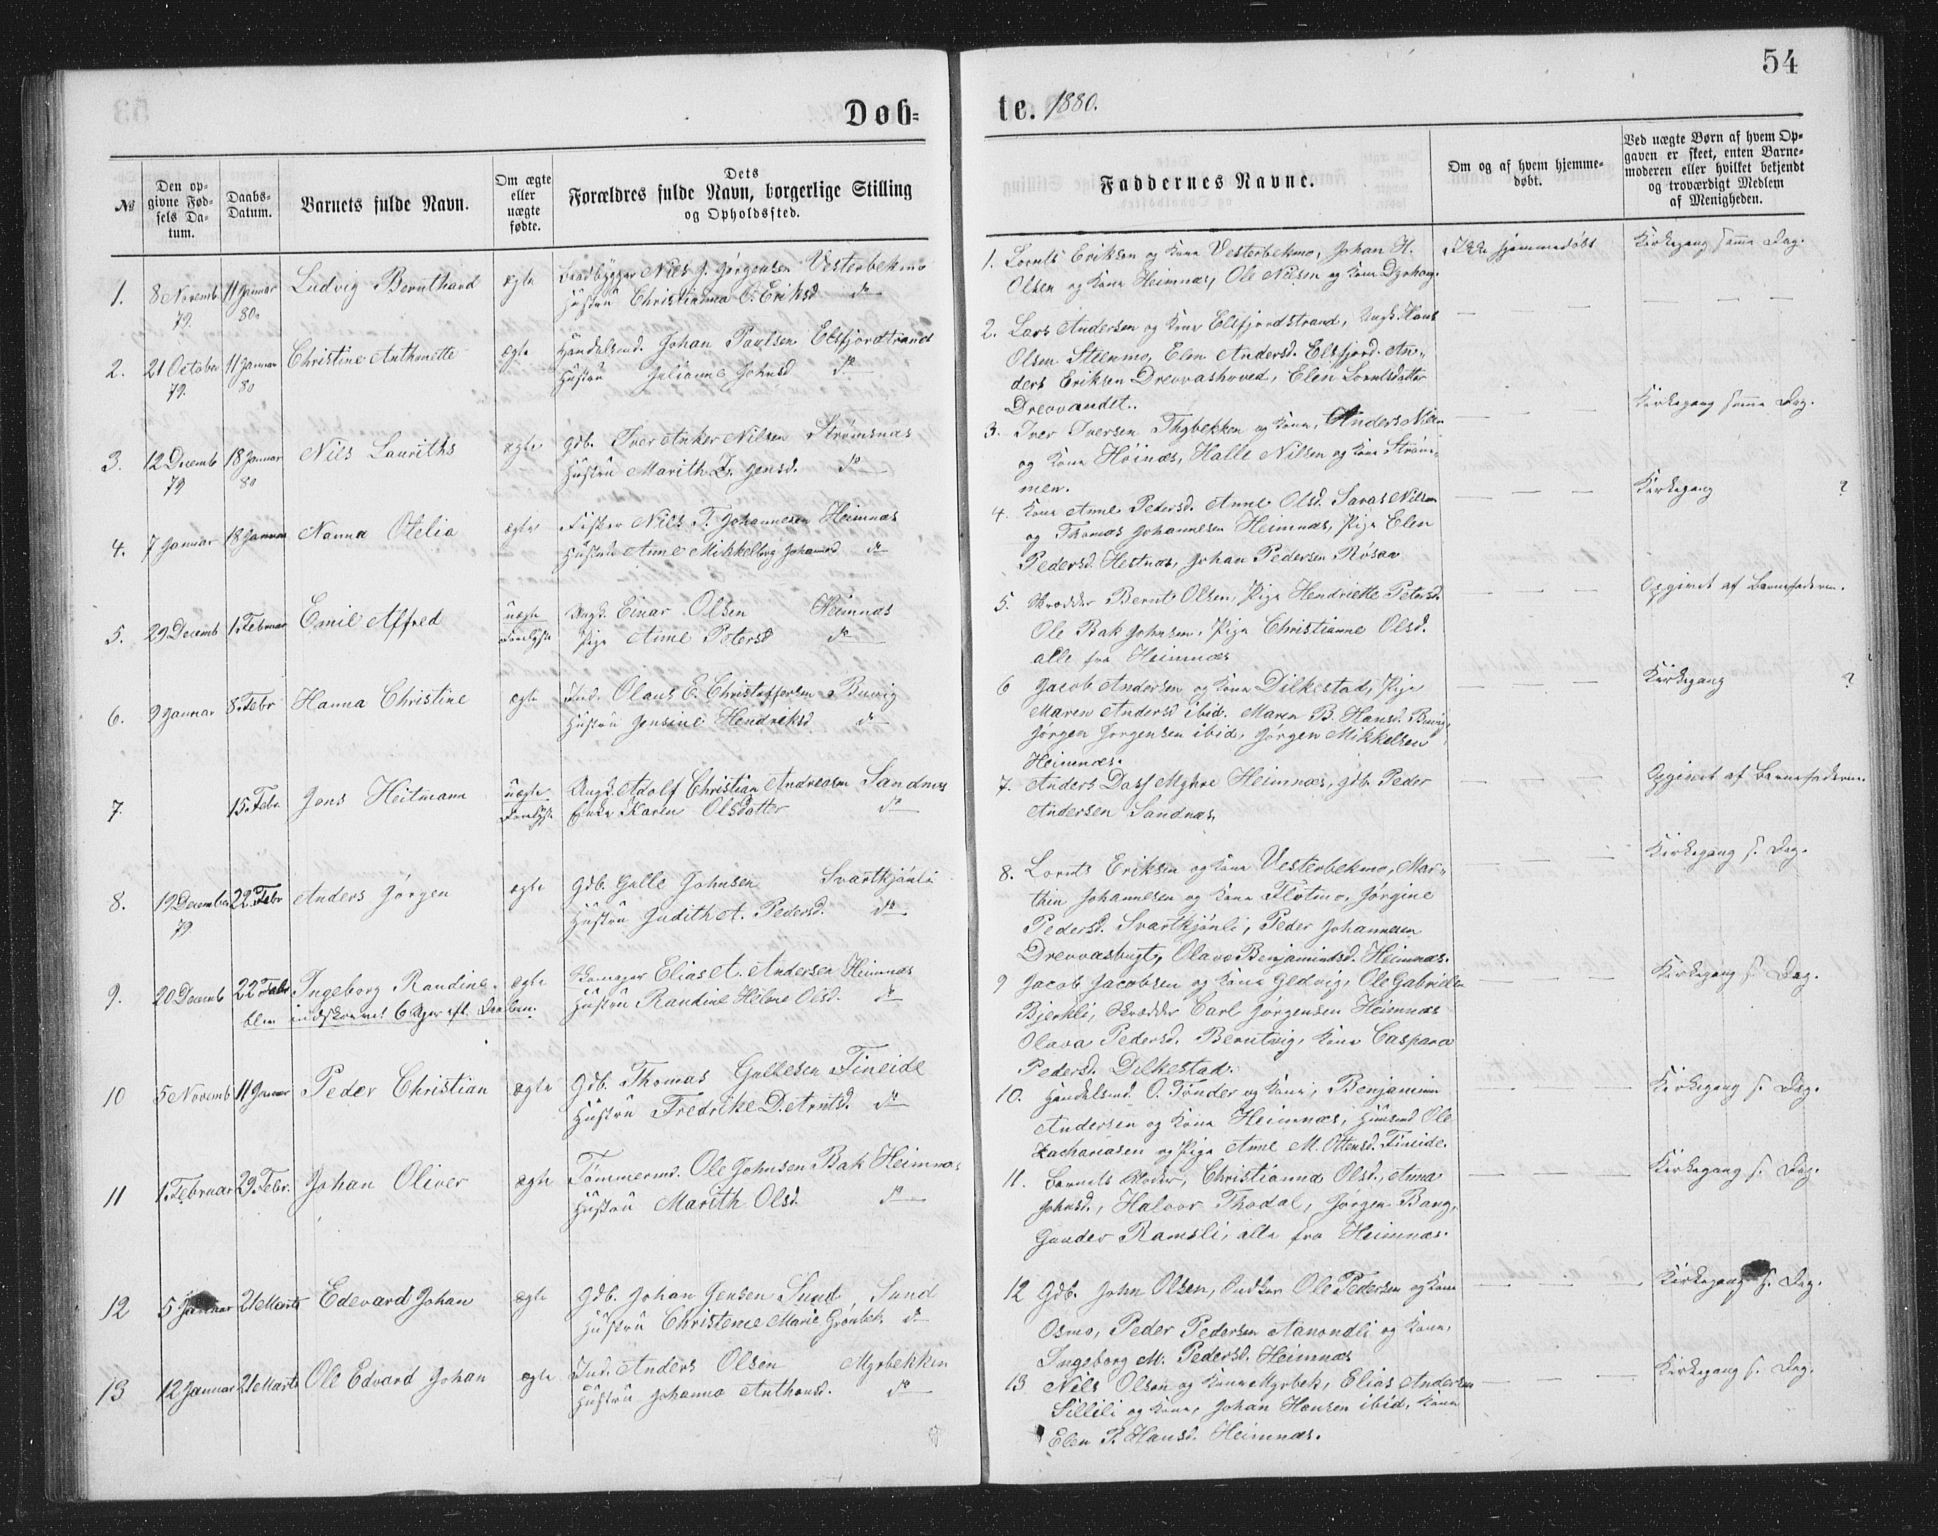 54
Døb-
te. 1880.
№
Den op-
givne Fød-
sels Da-
tum.
Daabs-
Datum.
Barnets fulde Navn.
Om ægte
eller
uægte
fødte.
Dets
Forældres fulde Navn, borgerlige Stilling
og Opholdssted.
Faddernes Navne.
Om og af hvem hjemme-
døbt.
Ved uægte Børn af hvem Op-
gaven er skeet, enten Barne-
moderen eller hvilket bekjendt
og troværdigt Medlem
af Menigheden.
1. 8 Novemb 79. 11 Januar 80. Ludvig Bernthard ægte
Nils J. Jørgensen Vesterbekmo
Hustru Christianna C. Eriksd do
1. Lornts Eriksen og Kone Vesterbekmo, Johan H.
Olsen og Kone Heimnæs, Ole Nilsen og Kone
Ikke hjemmedøbt
Kirkegang samme Dag.
2. 21 October 79. 11 Januar 80 Christine Anthonette ægte
Handelsmd. Johan Paulsen Elsfjordstrand
Hustru Julianne Johnsd do
2. Lars Andersen og Kone Elsfjordstrand, Ungk. Hans
Olsen Stenmo, Elen Andersd. Elsfjord. An-
ders Eriksen Drevvashoved, Elen Lorntsdatter
Drevvandet.
Kirkegang samme Dag.
3. 12 Decemb 79 18 Januar 80 Nils Lauriths ægte
Gdb. Iver Anker Nilsen Strømsnæs
Hustru Marith Jensd. do
3. Iver Iversen Thybekken og Kone, Anders Nils
og Kone Høinæs, Halle Nilsen og Kone Strøm-
men.
Kirkegang ?
4. 7 Januar 18 Januar Nanna Otelia ægte
Fisker Nils T. Johannesen Heimnæs
Hustru Anne Mikkelborg Johansd do
4. Kone Anne Pedersd. Anne Olsd. Saras Nilsen
og Thomas Johannesen Heimnæs, Pige Elen
Pedersd. Hestnæs, Johan Pedersen Røsaa
5. 29 Decemb 1. Februar Emil Alfred uægte
Ungk. Einar Olsen Heimnæs
Pige Anne Petersd do
5. Skrædder Bernt Olsen, Pige Hendriette Petersd.
Ole Bak Johnsen, Pige Christianne Olsd.
alle fra Heimnæs
Opgivet af Barnefaderen.
6. 9 Januar 8. Febr Hanna Christine ægte
Ind. Olaus E. Christoffersen Buvig
Hustru Jensine Hendriksd. do
6 Jacob Andersen og Kone Dilkestad, Pige
Maren Andersd ibid. Maren B. Hansd. Buvig,
Jørgen Jørgensen ibid, Jørgen Mikkelsen
Heimnæs.
Kirkegang ?
7. 15. Febr. Jens Heitmann uægte
Ungk. Adolf Christian Andreasen Sandnæs
Enke Karen Olsdatter do
7. Anders Dass Myhre Heimnæs, Gdb. Peder
Andersen Sandnæs.
Opgivet af Barnefaderen.
8. 19 December 79 22. Febr Anders Jørgen ægte
Gdb. Gulle Johnsen Svartkjønli
Hustru Judith A. Pedersd. do
8. Lornts Eriksen og Kone Vesterbekmo, Mar-
thin Johannesen og Kone Flotmo, Jørgine
Pedersd. Svartkjønli, Peder Johannesen
Drevvasbugt, Olava Benjaminsd. Heimnæs.
Kirkegang s. Dag.
9. 20 Decemb 22 Febr Ingeborg Randine. ægte
blev indskrevet 6 Uger eft. Daaben.
Elias A. Andersen Heimnæs
Hustru Randine Helene Olsd. do
9 Jacob Jacobsen og Kone Gledvig, Ole Gabrielsen
Bjerkli, Skrædder Carl Jørgensen Heimnæs
Olava Pedersd. Berntvig, Kone Caspara
Pedersd. Dilkestad.
Kirkegang s. Dag.
10 5 Novemb 11 Januar Peder Christian ægte
Gdb. Thomas Gullesen Fineide
Hustru Fredrike D. Arntsd. do
10. Handelsmd. O. Tønder og Kone, Benjamin
Andersen og Kone Heimnæs, Husmd Ole
Zachariasen og Pige Anne M. Ottensd. Fineide.
Kirkegang s. Dag.
11 1. Februar 29. Febr. Johan Oliver ægte
Tømmermd. Ole Johnsen Bak Heimnæs
Hustru Marith Olsd. do
11. Barnets Moder, Christianna Olsd., Anna
Johnsd., Halvor Thodal, Jørgen Bang,
Gunder Ramsli, alle fra Heimnæs.
Kirkegang s. Dag.
12 5 Januar 21 Marts Edevard Johan ægte
Gdb. Johan Jensen Sund Sund
Hustru Christense Marie Grønbek. do
12 Gdb. John Olsen, Ole Pedersen og Kone
Osmo, Peder Pedersen Aanondli og Kone,
Ingeborg M. Pedersd. Heimnæs
Kirkegang s. Dag.
13 12 Januar 21 Marts Ole Edvard Johan ægte
Ind. Anders Olsen Myrbekken
Hustru Johanna Anthonsd. do
13 Nils Olsen og Kone Myrbek, Elias Andersen
Lillili og Kone, Johan Hansen ibid, Kone
Elen P. Hansd. Heimnæs.
Kirkegang s. Dag.